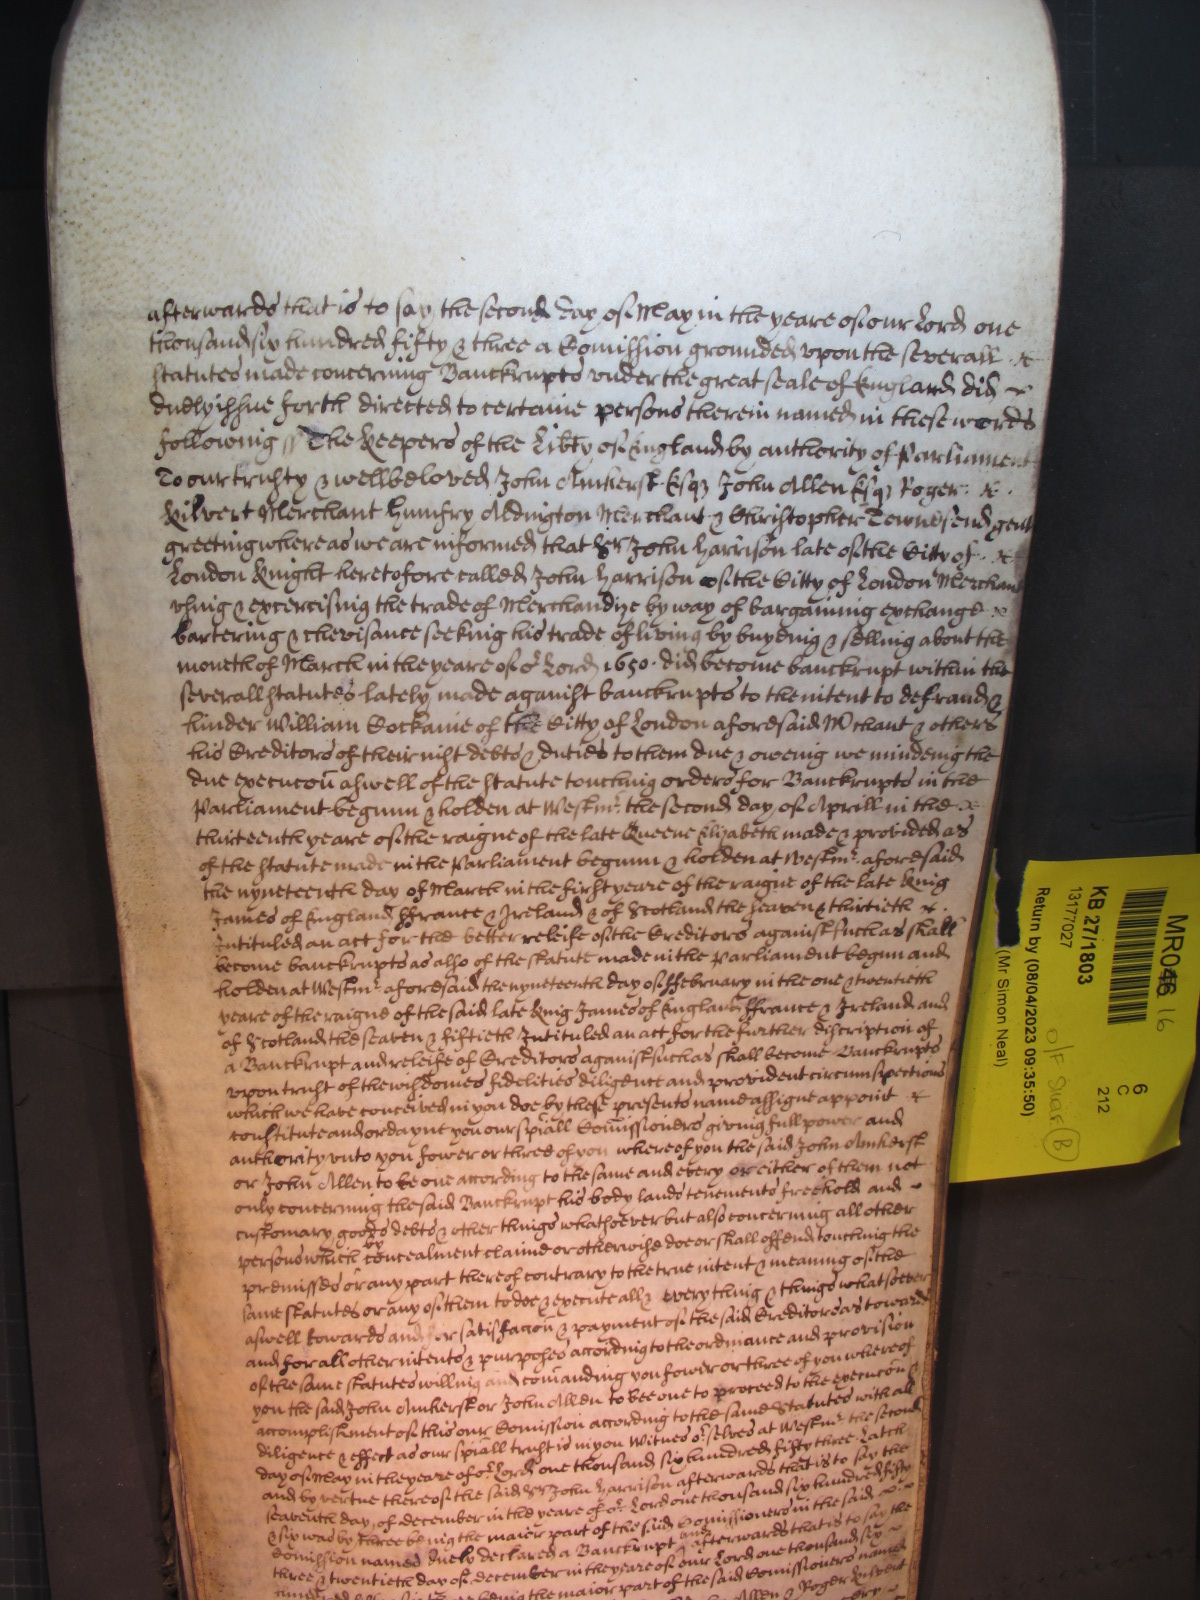 afterwards that is to say the second day of May in the yeare of our Lord one
thousand six hundred fifty & three a Comission grounded vpon the severall
statutes made concerning Banckrupts vnder the great seale of England did
duely issue forth directed to certaine persons therein named in these words
following The Keepers of the Libty of England by authority of Parliament
To our trusty & wellbeloved John Amherst Esqz John Allen Esqz Roger
Kilvert Merchant Humfry Aldington Merchant & Christopher Townesend gent
greeting whereas we are informed that Sr John Harrison late of the Citty of
London Knight heretofore called John Harrison of the Citty of London Merchant
vsing & excercising the trade of Merchandize by way of bargaining exchange
bartering & chevisance seeking his trade of living by buyeing & selling about the
moneth of March in the yeare of or Lord 1650. did become banckrupt within the
severall statutes lately made against banckrupts to the intent to defraud &
hinder William Cockaine of the Citty of London aforesaid Mchant & others
his Creditors of their iust debts & duties to them due & oweing we mindeing the
due execucon aswell of the statute touching orders for Banckrupts in the
Parliament begunn & holden at Westmr. the second day of Aprill in the
thirteenth yeare of the raigne of the late Queene Elizabeth made & provided as
of the statute made in the Parliament begunn & holden at Westmr. aforesaid
the nyneteenth day of March in the first yeare of the raigne of the late King
James of England ffrance & Ireland & of Scotland the seaven & thirtieth
Intituled an act for the better releife of the Creditors against such as shall
become banckrupts as also of the statute made in the Parliament begun and
holden at Westmr. aforesaid the nyneteenth day of ffebruary in the one & twentieth
yeare of the raigne of the said late King James of England ffrance & Ireland and
of Scotland the seaven & fiftieth Intituled an act for the further discription of
a Banckrupt and releife of Creditors against such as shall become Banckrupts
vpon trust of the wisdomes fidelities diligence and provident circumspections
which we have conceived in you doe by these presents name assigne appoint
constitute and ordayne you our spiall Comissioners giving full power and
authority vnto you fower or three of you whereof you the said John Amherst
or John Allen to be one according to the same and every or either of them not
only concerning the said Banckrupt his body lands tenements freehold and
customary goods debts & other things whatsoever but also concerning all other
persons which by concealment claime or otherwise doe or shall offend touching the
premisses or any part thereof contrary to the true intent & meaning of the
same statutes or any of them to doe & execute all & every thing & things whatsoever
aswell towards and for satisfaccon & payment of the said Creditors as towards
and for all other intents & purposes according to the ordinance and provision
of the same statutes willing and comanding you fower or three of you whereof
you the said John Amherst or John Allen to bee one to proceed to the execucon &
accomplishment of this our Comission according to the same Statutes with all
diligence & effect as our spiall trust is in you Witnes or. selves at Westmr. the second
day of May in the yeare of or. Lord one thousand six hundred fifty three Latch
and by vertue thereof the said Sr John Harrison afterwards that is to say the
seaventh day of december in the yeare of or. Lord one thousand six hundred fifty
& six was by three being the maior part of the said Comissioners in the said
Comission named duely declared a Banckrupt and afterwards that is to say the
three & twentieth day of december in the yeare of our Lord one thousand six
being the maior part of the said Comissioners named
Allen & Roger Kilvert
MR046 16
KB 27/1803
13177027
6
C
212
Return by (08/04/2023 09:35:50)
(Mr Simon Neal)
O/F Shelf B